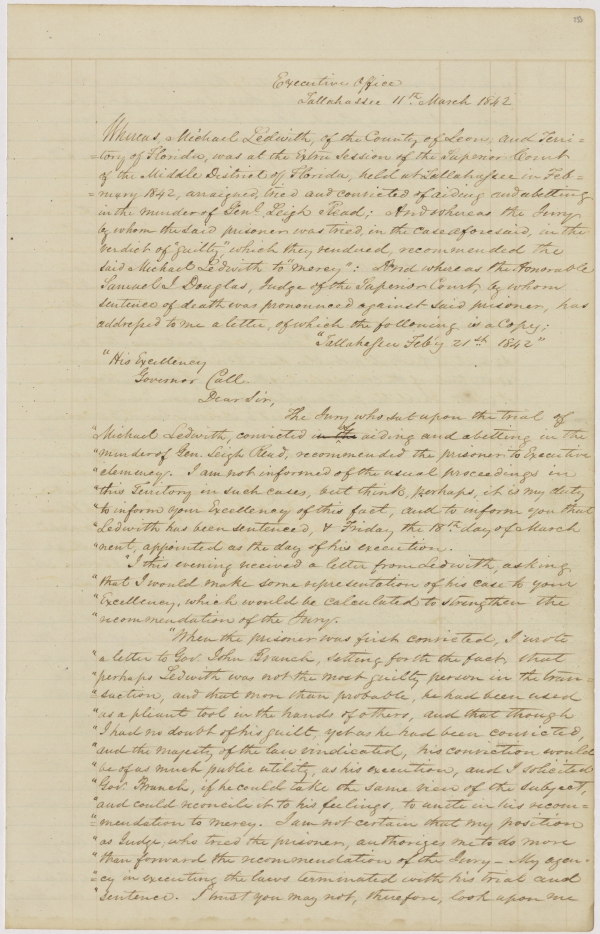 Executive Office
Tallahassee 11th March 1842
Whereas, Michael Ledwith, of the County of Leon, and Terri-
=tory of Florida, was at the Extra Session of the Superior Court
of the Middle District of Florida, held at Tallahassee in Feb-
=ruary 1842, arraigned, tried and convicted of aiding and abetting
in the murder of Genl. Leigh Read; And whereas the Jury
by whom the said prisoner was tried, in the case aforesaid, in the
verdict of "guilty," which they rendered, recommended the
said Michael Ledwith to "mercy": And whereas the Honorable
Samuel J. Douglas, Judge of the Superior Court, by whom
sentence of death was pronounced against said prisoner, has
addressed to me a letter, of which the following is a Copy;
"Tallahassee Feb'y 21st 1842"
"His Excellency
Governor Call.
Dear Sir,
The Jury who sat upon the trial of
"Michael Ledwith, convicted in the of aiding and abetting in the
"murder of Gen. Leigh Read, recommended the prisoner to Executive
"clemency. I am not informed of the usual proceedings in
"this Territory in such cases, but think, perhaps, it is my duty
"to inform your Excellency of this fact, and to inform you that
"Ledwith has been sentenced, & Friday the 18th day of March
"next, appointed as the day of his execution.
"I this evening received a letter from Ledwith, asking
"that I would make some representation of his case to your
"Excellency, which would be calculated to strengthen the
"recommendation of the Jury.
"When the prisoner was first convicted, I wrote
"a letter to Gov. John Branch, setting forth the fact, that
"perhaps Ledwith was not the most guilty person in the tran-
"saction, and that more than probable, he had been used
"as a pliant tool in the hands of others, and that though
"I had no doubt of his guilt, yet as he had been convicted,
"and the majesty of the law vindicated, his conviction would
"be of as much public utility, as his execution, and I solicited
"Gov. Branch, if he could take the same view of the subject,
"and could reconcile it to his feelings, to unite in his recom-
"=mendation to mercy. I am not certain that my position
"as Judge, who tried the prisoner, authorizes me to do more
"than forward the recommendation of the Jury – My agen-
"=cy in executing the laws terminated with his trial and
"sentence. I trust you may not, therefore, look upon me